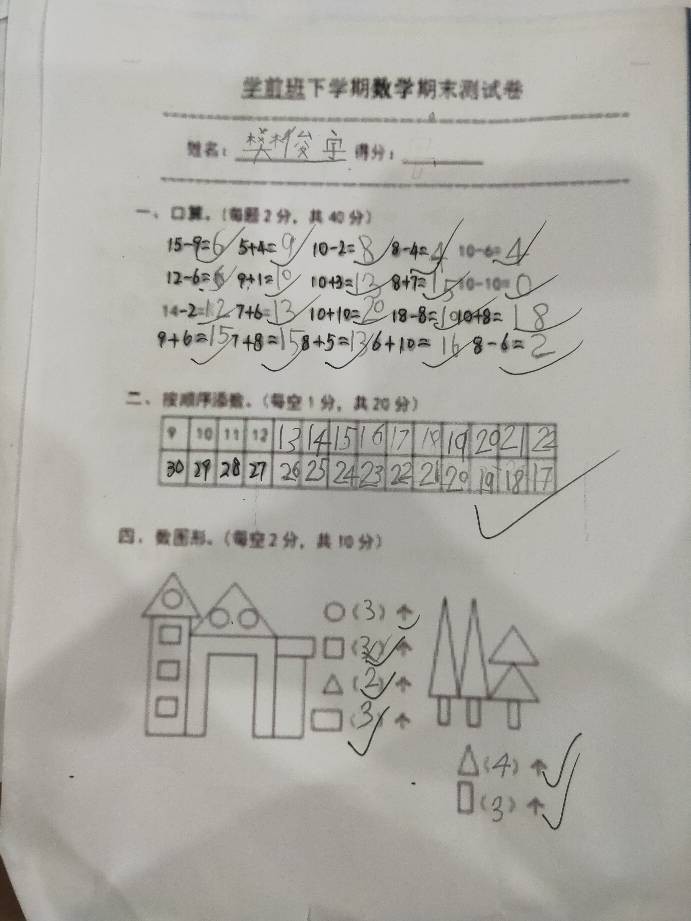 学前班下学期数学期末测试卷
姓名： 樊梓俊宇 得分：
一、口算。（每题2分，共40分）
15-9=6 5+4=9 10-2=8 8-4=4 10-6=4
12-6=6 9+1=10 10+3=13 8+7=15 10-10=0
14-2=12 7+6=13 10+10=20 18-8=10 10+8=18
9+6=15 7+8=15 8+5=13 6+10=16 8-6=2
二、按顺序添数。（每空1分，共20分）
9 10 11 12 13 14 15 16 17 18 19 20 21 22
30 29 28 27 26 25 24 23 22 21 20 19 18 17
四、数图形。（每空2分，共10分）
（3）个
（3）个
（2）个
（3）个
（4）个
（3）个